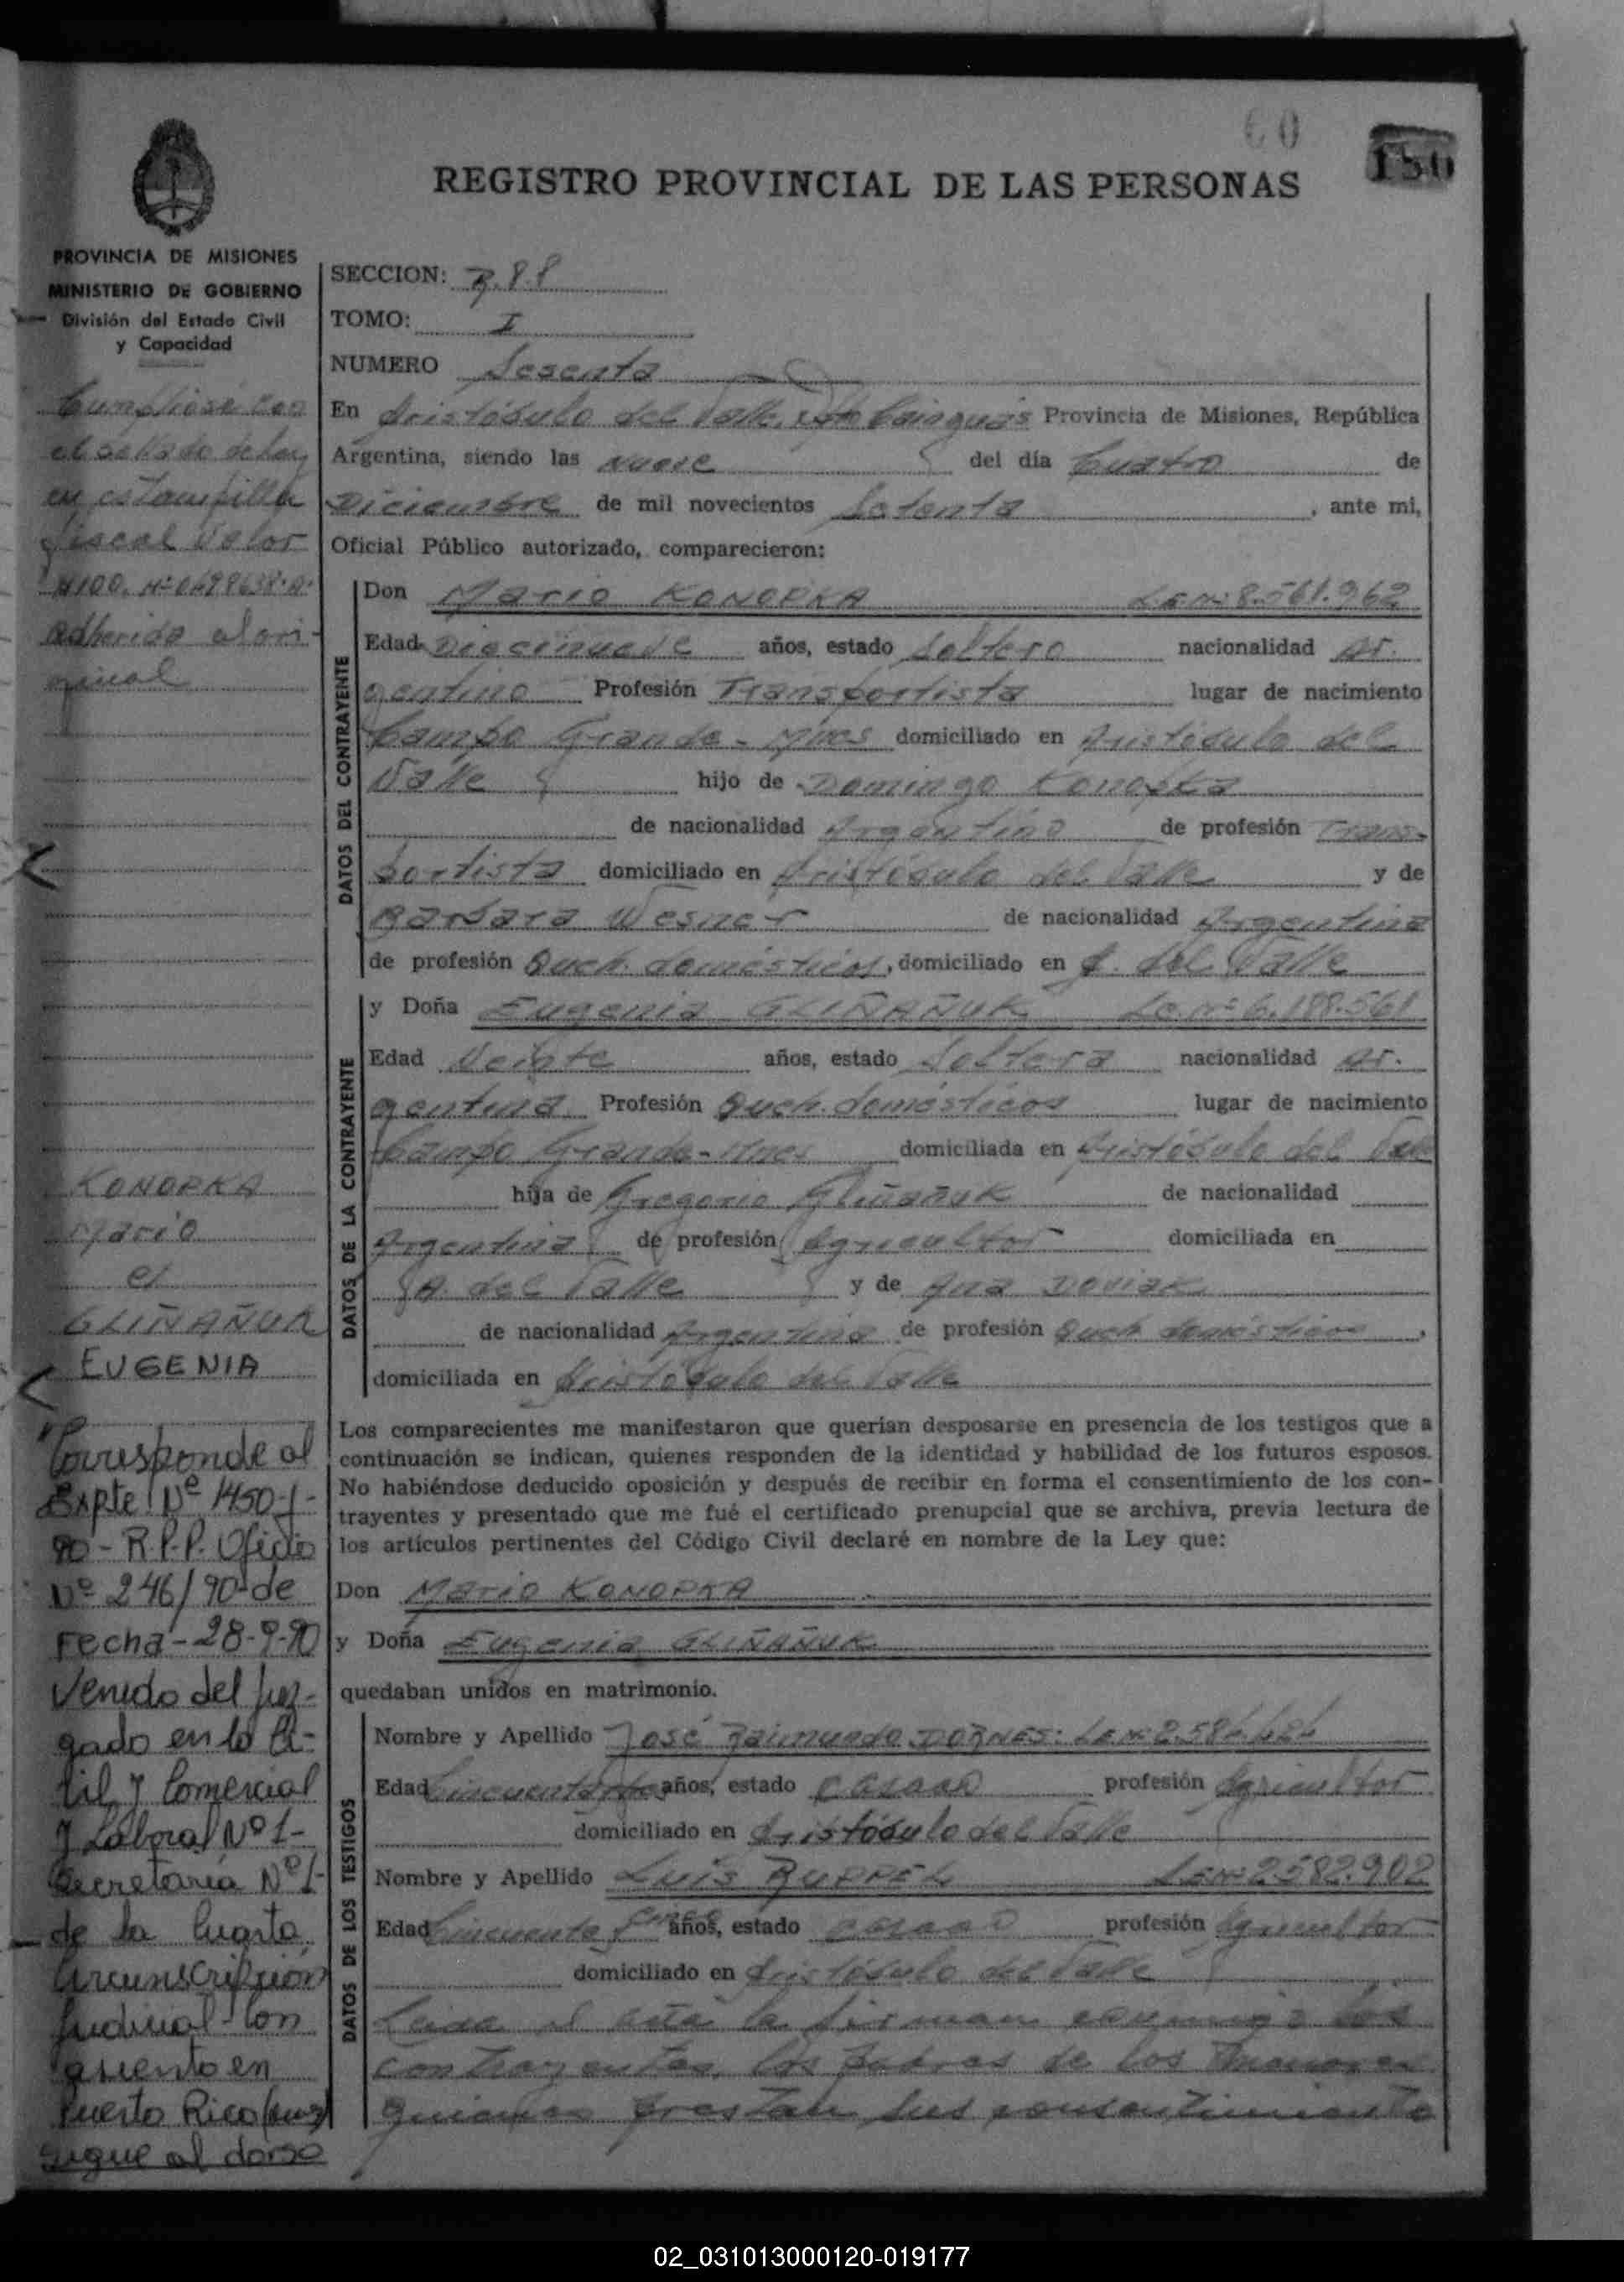 60
150
REGISTRO PROVINCIAL DE LAS PERSONAS
PROVINCIA DE MISIONES
MINISTERIO DE GOBIERNO
División del Estado Civil
y Capacidad
SECCION:
TOMO: I
NUMERO Sesenta
En Aristóbulo del Valle, Dpto Cainguás Provincia de Misiones, República
Argentina, siendo las nueve del día Cuatro de
Diciembre de mil novecientos Setenta, ante mi,
Oficial Público autorizado, comparecieron:
DATOS DEL CONTRAYENTE
Don Mario KONOPKA L.E.Nº 8.561.962
Edad Diecinueve años, estado Soltero nacionalidad Ar-
gentino Profesión Transportista lugar de nacimiento
Campo Grande - Mnes domiciliado en Aristóbulo del
Valle hijo de Domingo Konopka
de nacionalidad Argentino de profesión Trans-
portista domiciliado en Aristóbulo del Valle y de
Barbara Wesner de nacionalidad Argentina
de profesión Queh. domésticos, domiciliado en A. del Valle
DATOS DE LA CONTRAYENTE
y Doña Eugenia GLIÑAÑUK L.C.Nº 6.188.561
Edad Veinte años, estado Soltera nacionalidad Ar-
gentina Profesión Queh. domésticos lugar de nacimiento
Campo Grande - Mnes domiciliada en Aristóbulo del Valle
hija de Gregorio Gliñañuk de nacionalidad
Argentina de profesión Agricultor domiciliada en
A. del Valle y de Ana Doviak
de nacionalidad Argentina de profesión Queh. domésticos,
domiciliada en Aristóbulo del Valle
Los comparecientes me manifestaron que querían desposarse en presencia de los testigos que a
continuación se indican, quienes responden de la identidad y habilidad de los futuros esposos.
No habiéndose deducido oposición y después de recibir en forma el consentimiento de los con-
trayentes y presentado que me fué el certificado prenupcial que se archiva, previa lectura de
los artículos pertinentes del Código Civil declaré en nombre de la Ley que:
Don Mario KONOPKA
y Doña Eugenia GLIÑAÑUK
quedaban unidos en matrimonio.
DATOS DE LOS TESTIGOS
Nombre y Apellido José Raimundo DORNES: L.E.Nº
Edad Cincuenta años, estado casado profesión Agricultor
domiciliado en Aristóbulo del Valle
Nombre y Apellido Luis RUPPEL L.E.Nº 2.582.902
Edad Cincuenta y años, estado casado profesión Agricultor
domiciliado en Aristóbulo del Valle
Leida el acta la firman conmigo los
contrayentes, los padres de los menores
quienes prestan sus consentimiento
Cumpliose con
el sellado de ley
en estampilla
fiscal valor
$100. Nº 0498638.A.
adherida al ori-
ginal
KONOPKA
Mario
c/
GLIÑAÑUK
EUGENIA
Corresponde al
Expte Nº 1450-1-
90 - R.P.P. Oficio
Nº 246/90 de
Fecha - 28-9-90
Venido del Juz-
gado en lo Ci-
vil y Comercial
y Laboral Nº 1-
Secretaria Nº 1-
de la Cuarta
Circunscripción
Judicial - con
asiento en
Puerto Rico (Mnes)
Sigue al dorso
02_031013000120-019177